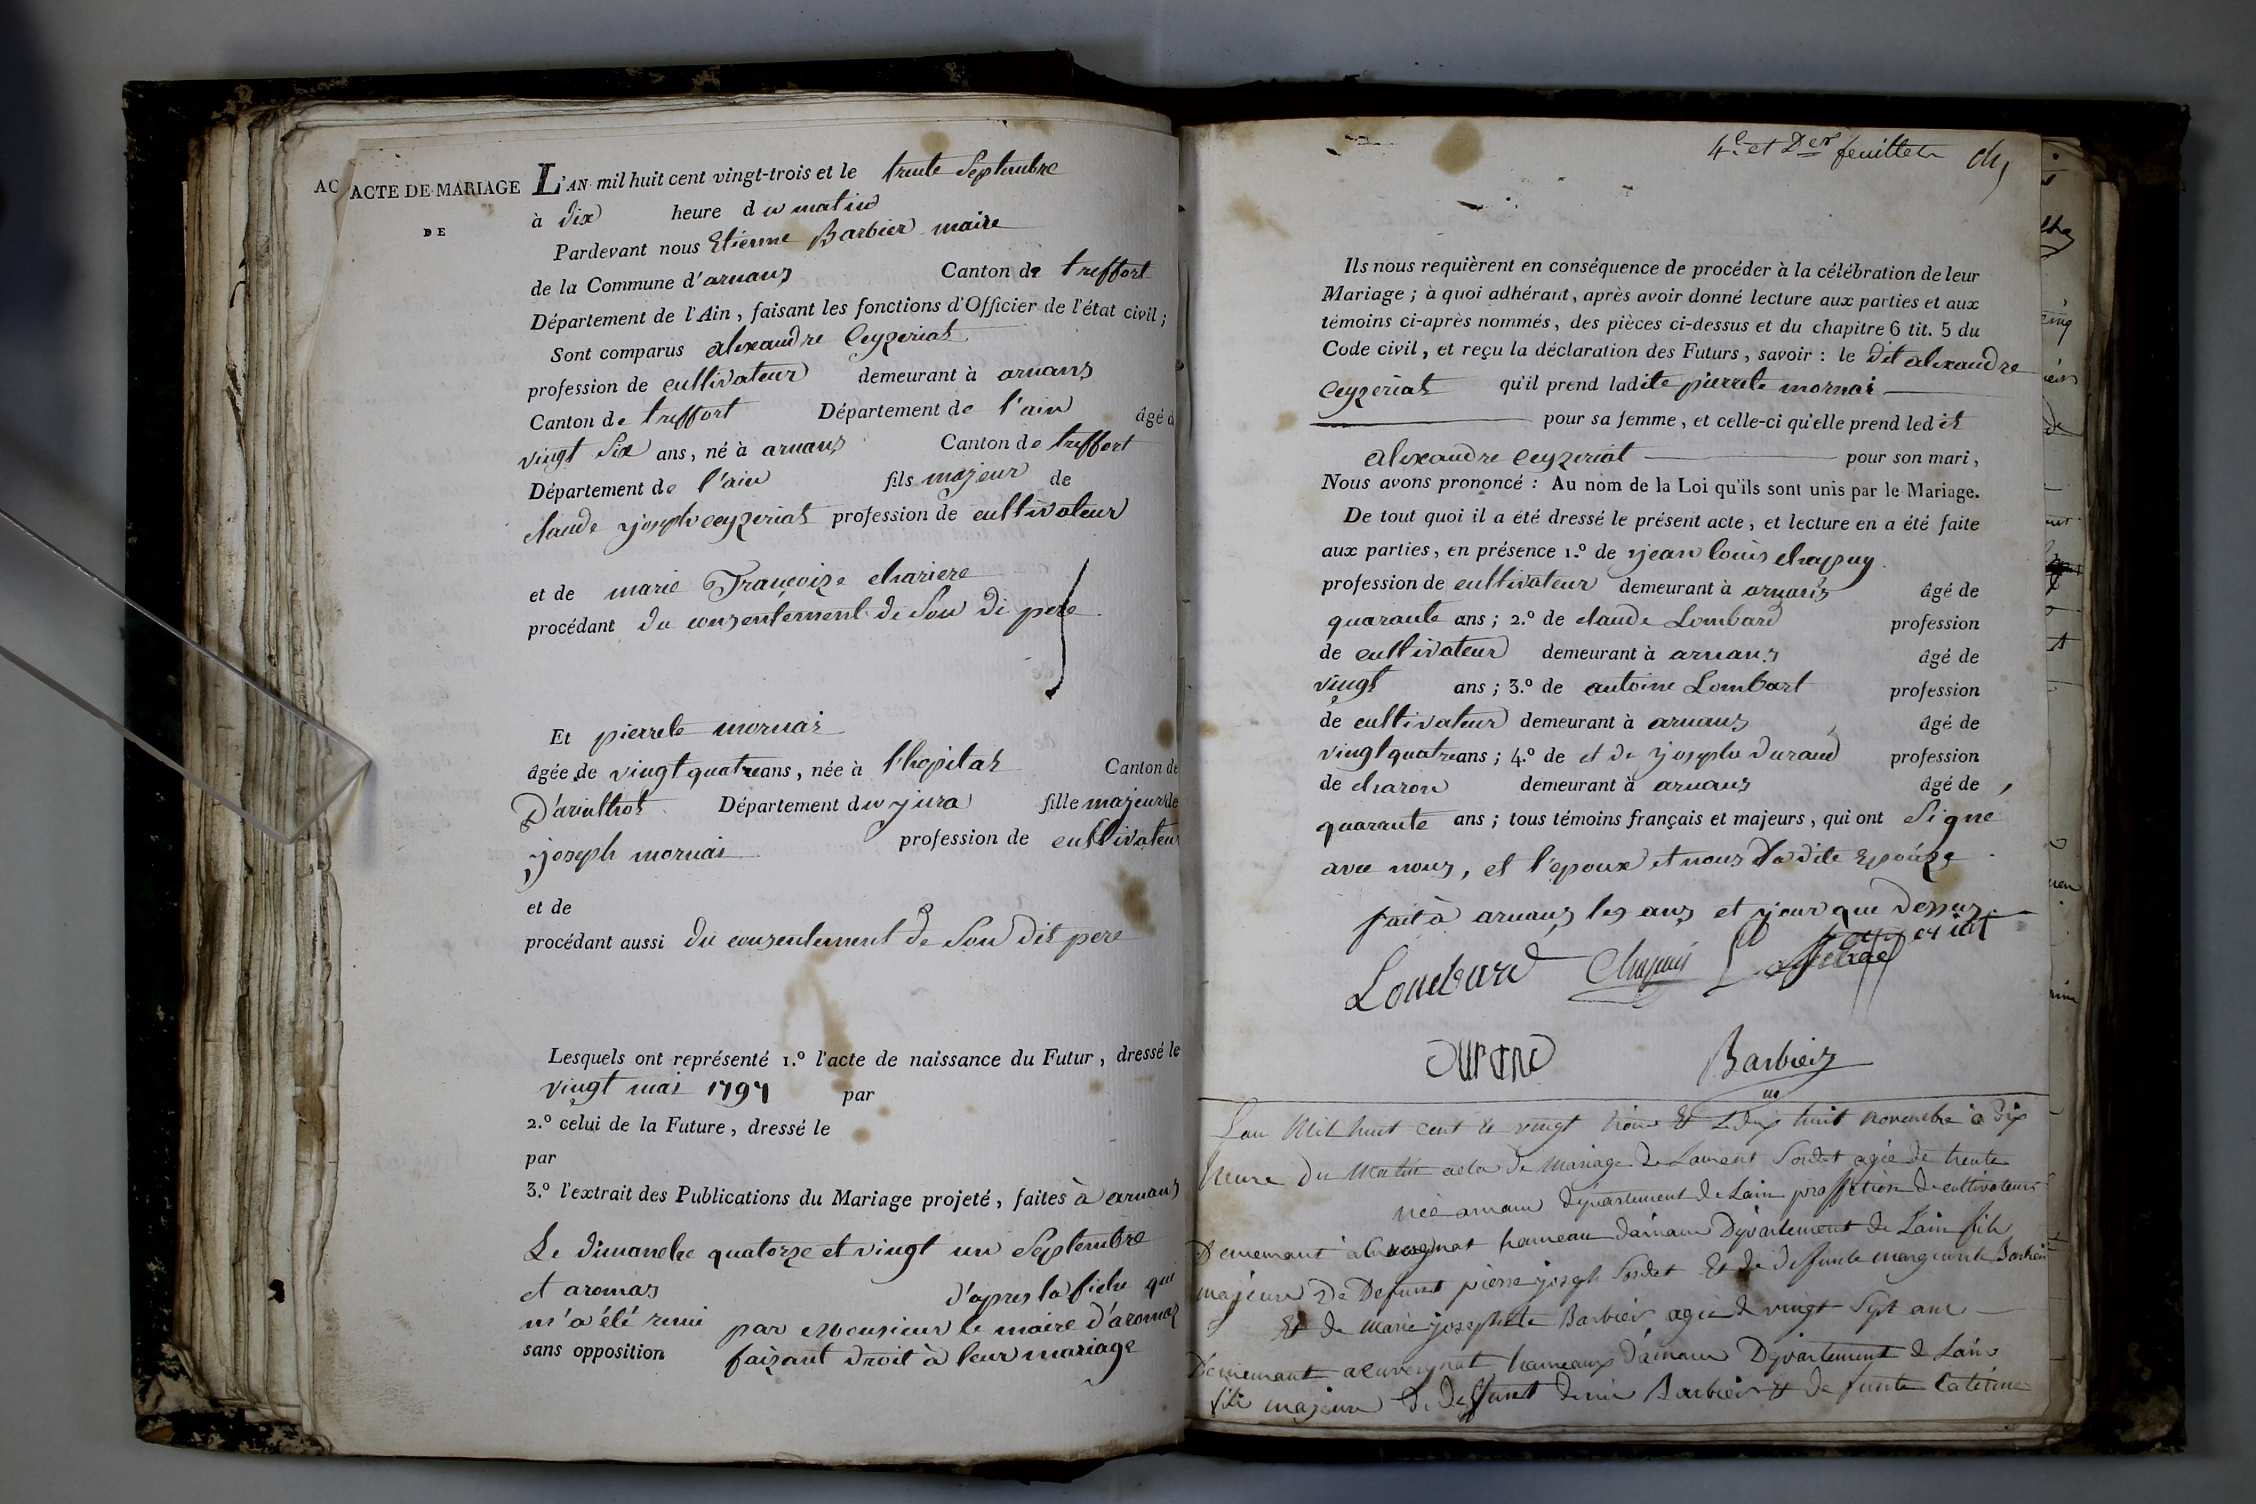 AC
ACTE DE MARIAGE
DE
L'AN mil huit cent vingt-trois et le trente Septembre
à dix heure du matin
Pardevant nous Etienne Barbier maire
de la Commune d'arnans Canton de treffort
Département de l'Ain, faisant les fonctions d'Officier de l'état civil;
Sont comparus alexandre Ceyzeriat
profession de cultivateur demeurant à arnans
Canton de treffort Département de l'ain âgé d
vingt Six ans, né à arnans Canton de treffort
Département de l'ain fils majeur de
claude yjoseph ceyzeriat profession de cultivateur
et de marie Françoize chariere
procédant du conzentement de Son di pere
Et pierrete mornai
âgée de vingt quatre ans, née à l'hopital Canton de
D'arinthot Département du yjura fille majeur de
yjoseph mornai profession de cultivateur
et de
procédant aussi du conzentement de Son dit pere
Lesquels ont représenté 1.º l'acte de naissance du Futur, dressé le
vingt mai 1797 par
2.º celui de la Future, dressé le
par
3.º l'extrait des Publications du Mariage projeté, faites à arnans
Le dimanche quatorze et vingt un Septembre
et aromas d'apres la fiche qui
m'a été remi par Monsieur le maire d'aromas
sans opposition faizant droit à leur mariage
4.e et Der feuillet
Ils nous requièrent en conséquence de procéder à la célébration de leur
Mariage; à quoi adhérant, après avoir donné lecture aux parties et aux
témoins ci-après nommés, des pièces ci-dessus et du chapitre 6 tit. 5 du
Code civil, et reçu la déclaration des Futurs, savoir: le dit alexandre
Ceyzeriat qu'il prend ladite pierrete mornai
pour sa femme, et celle-ci qu'elle prend ledit
alexandre ceyzeriat pour son mari,
Nous avons prononcé: Au nom de la Loi qu'ils sont unis par le Mariage.
De tout quoi il a été dressé le présent acte, et lecture en a été faite
aux parties, en présence 1.º de yjean louis chapuy
profession de cultivateur demeurant à arnans âgé de
quarante ans; 2.º de claude Lombard profession
de cultivateur demeurant à arnans âgé de
vingt ans; 3.º de antoine Lombart profession
de cultivateur demeurant à arnans âgé de
vingt quatre ans; 4.º de et de yjoseph durand profession
de charon demeurant à arnans âgé de
quarante ans; tous témoins français et majeurs, qui ont Signe
avec nous, et l'epoux et nous la dite Epouze
fait à arnans les ans et yjour que dessus
Lombard Chapuis
Durand Barbier
m
L'an Mil huit cent et vingt trois Et Le dix huit novembre à dix
heure Du Matin acte De Mariage De Laurent Sordet agée de trente
née arnans département de Lain proffetion de cultivateur
Demeurant hameau darnans Département De Lain fils
majeure De Defunt pierre yjoseph Sordet Et De deffunte margueritte Barbier
Et De Marie yjosephete Barbier agée de vingt Sept ans
Demeurant hameaux darnans Département de Lain
file majeure De Deffunt denis Barbier Et De funte Caterine